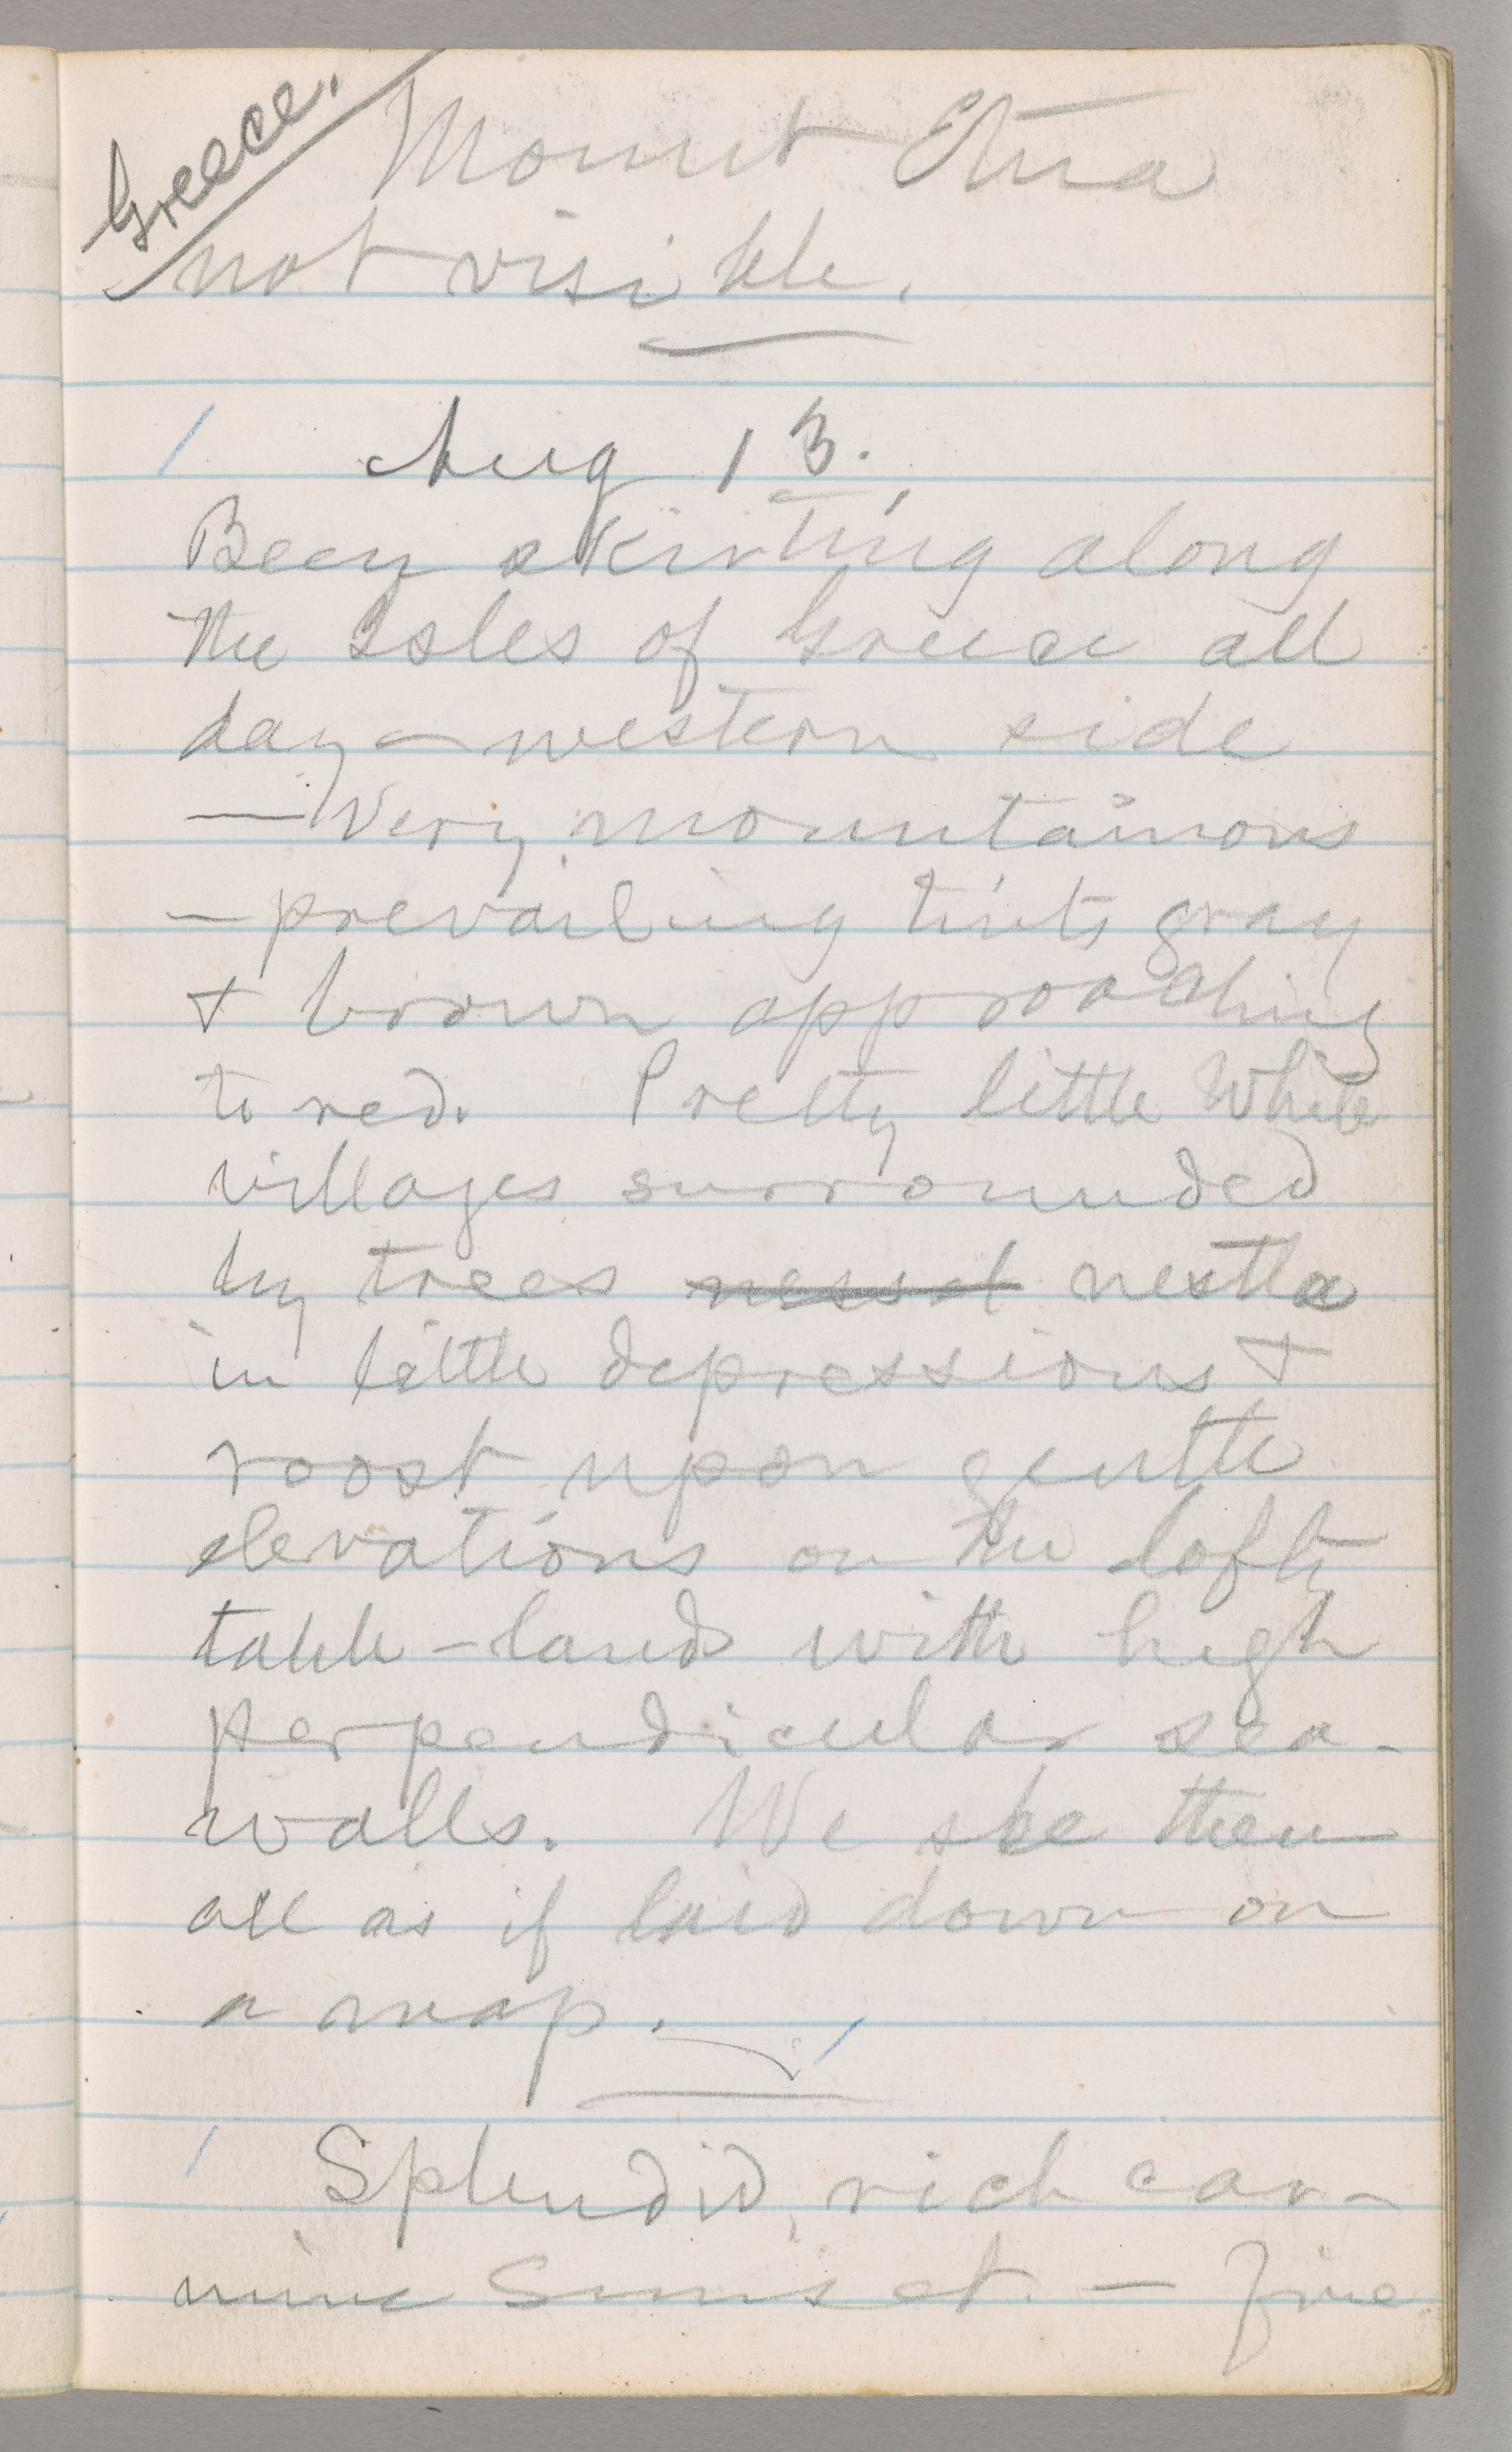 Greece.
Mount Etna
not visible.
Aug 13.
Been skirting along
the Isles of Greece all
day — western side
— Very mountainous
— prevailing tints gray
& brown approaching
to red. Pretty little White
villages surrounded
by trees nessel nestle
in little depressions &
roost upon gentle
elevations on the lofty
table-lands with high
perpendicular sea-
walls. We see them
all as if laid down on
a map.
Splendid, rich car-
mine Sunset. — Fine